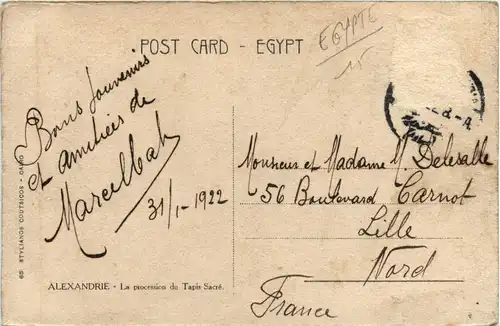 POST CARD - EGYPT
EGYPTE
15
Bons Souvenirs
et amitiées de
31/1-1922
Monsieur et Madame M. Delesalle
56 Boulevard Carnot
Lille
Nord
France
ALEXANDRIE - La procession du Tapis Sacré.
65 STYLIANOS COUTSICOS - CAIRO